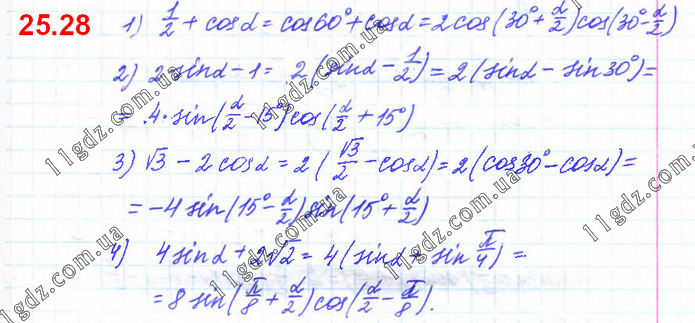 25.28
1) 1/2 + cosα = cos60° + cosα = 2cos(30° + α/2)cos(30° - α/2)
2) 2sinα - 1 = 2(sinα - 1/2) = 2(sinα - sin30°) =
= 4·sin(α/2 - 15°)cos(α/2 + 15°)
3) √3 - 2cosα = 2(√3/2 - cosα) = 2(cos30° - cosα) =
= -4sin(15° - α/2)sin(15° + α/2)
4) 4sinα + 2√2 = 4(sinα + sin π/4) =
= 8sin(π/8 + α/2)cos(α/2 - π/8).
11gdz.com.ua
11gdz.com.ua
11gdz.com.ua
11gdz.com.ua
11gdz.com.ua
11gdz.com.ua